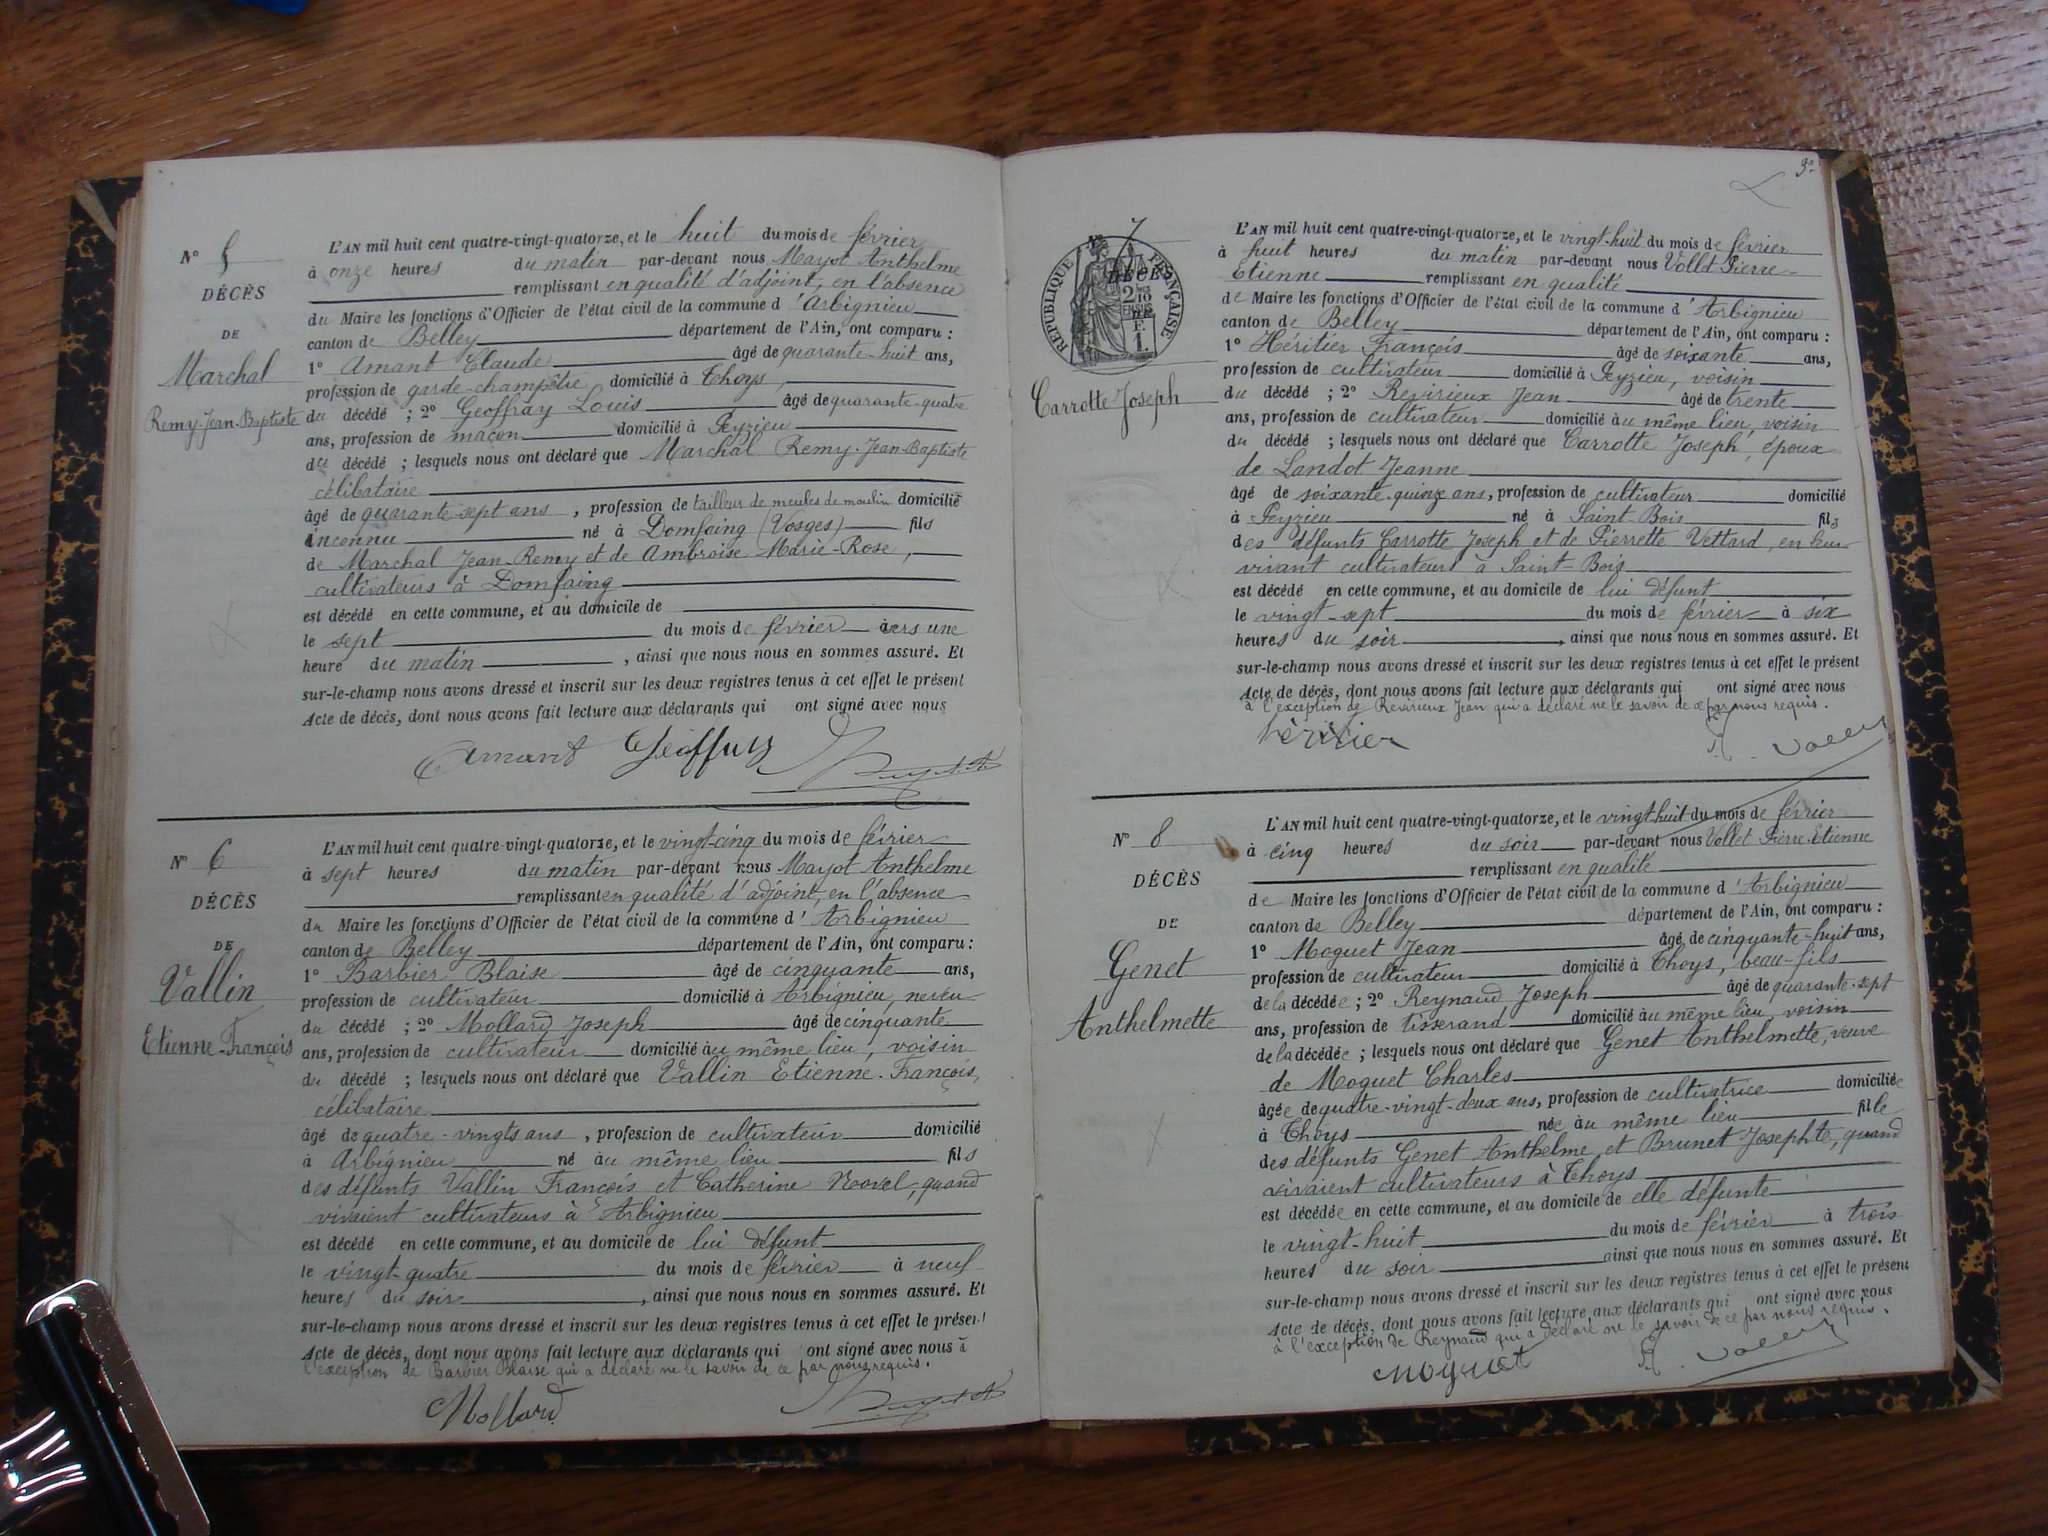 N° 5
DÉCÈS
DE
Marchal
Remy-Jean-Baptiste
L'AN mil huit cent quatre-vingt-quatorze, et le huit du mois de février
à onze heures du matin par-devant nous Mayot Anthelme
remplissant en qualité d'adjoint, en l'absence
du Maire les fonctions d'Officier de l'état civil de la commune d'Arbignieu
canton de Belley département de l'Ain, ont comparu :
1° Amant Claude âgé de quarante-huit ans,
profession de garde-champêtre domicilié à Thoys,
du décédé ; 2° Geoffray Louis âgé de quarante-quatre
ans, profession de maçon domicilié à Peyzieu
du décédé ; lesquels nous ont déclaré que Marchal Remy-Jean-Baptiste
célibataire
âgé de quarante-sept ans, profession de tailleur de meules de moulin domicilié
inconnu né à Domfaing (Vosges) fils
de Marchal Jean-Remy et de Ambroise Marie-Rose,
cultivateurs à Domfaing
est décédé en cette commune, et au domicile de
le sept du mois de février vers une
heure du matin, ainsi que nous nous en sommes assuré. Et
sur-le-champ nous avons dressé et inscrit sur les deux registres tenus à cet effet le présent
Acte de décès, dont nous avons fait lecture aux déclarants qui ont signé avec nous
Amant Geoffray
N° 6
DÉCÈS
DE
Vallin
Etienne-François
L'AN mil huit cent quatre-vingt-quatorze, et le vingt-cinq du mois de février
à sept heures du matin par-devant nous Mayot Anthelme
remplissant en qualité d'adjoint, en l'absence
du Maire les fonctions d'Officier de l'état civil de la commune d'Arbignieu
canton de Belley département de l'Ain, ont comparu :
1° Barbier Blaise âgé de cinquante ans,
profession de cultivateur domicilié à Arbignieu, neveu
du décédé ; 2° Mollard Joseph âgé de cinquante
ans, profession de cultivateur domicilié au même lieu, voisin
du décédé ; lesquels nous ont déclaré que Vallin Etienne-François,
célibataire
âgé de quatre-vingts ans, profession de cultivateur domicilié
à Arbignieu né au même lieu fils
des défunts Vallin François et Catherine Novel, quand
vivaient cultivateurs à Arbignieu
est décédé en cette commune, et au domicile de lui défunt
le vingt-quatre du mois de février à neuf
heures du soir, ainsi que nous nous en sommes assuré. Et
sur-le-champ nous avons dressé et inscrit sur les deux registres tenus à cet effet le présent
Acte de décès, dont nous avons fait lecture aux déclarants qui ont signé avec nous à
l'exception de Barbier Blaise qui a déclaré ne le savoir de ce par nous requis.
Mollard
3
N° 7
DÉCÈS
DE
RÉPUBLIQUE FRANÇAISE
2 10
F.
1.
Carrotte Joseph
L'AN mil huit cent quatre-vingt-quatorze, et le vingt-huit du mois de février
à huit heures du matin par-devant nous Vollet Pierre-
Etienne remplissant en qualité
de Maire les fonctions d'Officier de l'état civil de la commune d'Arbignieu
canton de Belley département de l'Ain, ont comparu :
1° Héritier François âgé de soixante ans,
profession de cultivateur domicilié à Peyzieu, voisin
du décédé ; 2° Revirieux Jean âgé de trente
ans, profession de cultivateur domicilié au même lieu, voisin
du décédé ; lesquels nous ont déclaré que Carrotte Joseph, époux
de Landot Jeanne
âgé de soixante-quinze ans, profession de cultivateur domicilié
à Peyzieu né à Saint-Bois fils
des défunts Carrotte Joseph et de Pierrette Vettard, en leur
vivant cultivateurs à Saint-Bois
est décédé en cette commune, et au domicile de lui défunt
le vingt-sept du mois de février à six
heures du soir, ainsi que nous nous en sommes assuré. Et
sur-le-champ nous avons dressé et inscrit sur les deux registres tenus à cet effet le présent
Acte de décès, dont nous avons fait lecture aux déclarants qui ont signé avec nous
à l'exception de Revirieux Jean qui a déclaré ne le savoir de ce par nous requis.
héritier Vollet
N° 8
DÉCÈS
DE
Genet
Anthelmette
L'AN mil huit cent quatre-vingt-quatorze, et le vingt-huit du mois de février
à cinq heures du soir par-devant nous Vollet Pierre-Etienne
remplissant en qualité
de Maire les fonctions d'Officier de l'état civil de la commune d'Arbignieu
canton de Belley département de l'Ain, ont comparu :
1° Moguet Jean âgé de cinquante-huit ans,
profession de cultivateur domicilié à Thoys, beau-fils
de la décédée ; 2° Reynaud Joseph âgé de quarante-sept
ans, profession de tisserand domicilié au même lieu, voisin
de la décédée ; lesquels nous ont déclaré que Genet Anthelmette, veuve
de Moguet Charles
âgée de quatre-vingt-deux ans, profession de cultivatrice domiciliée
à Thoys née au même lieu fille
des défunts Genet Anthelme et Brunet Josephte, quand
vivaient cultivateurs à Thoys
est décédée en cette commune, et au domicile de elle défunte
le vingt-huit du mois de février à trois
heures du soir ainsi que nous nous en sommes assuré. Et
sur-le-champ nous avons dressé et inscrit sur les deux registres tenus à cet effet le présent
Acte de décès, dont nous avons fait lecture aux déclarants qui ont signé avec nous
à l'exception de Reynaud qui a déclaré ne le savoir de ce par nous requis.
Moguet Vollet